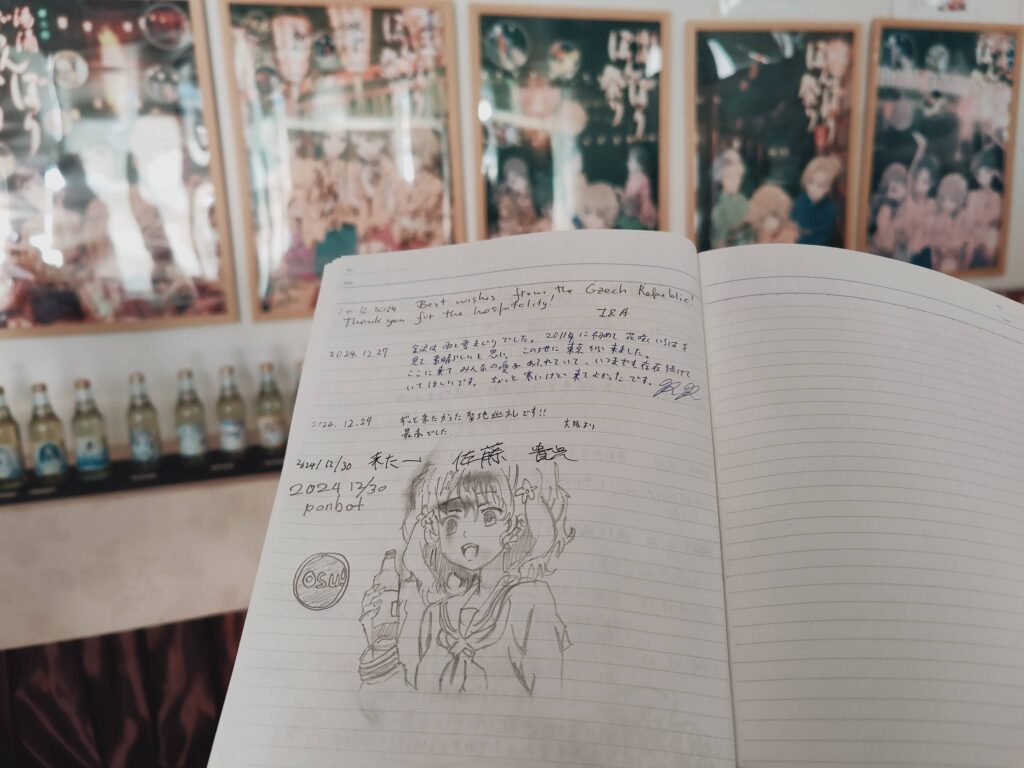 湯涌ぼんぼり
ぼんぼり祭り
ぼんぼり祭り
ぼんぼり祭り
26.12.2024 Best wishes from the Czech Republic!
Thank you for the hospitality!
I&A
2024.12.27 金沢は雨と雪まじりでした。2011年に初めて花咲くいろはを
見て素晴らしいと思い、この地に東京から来ました。
ここに来てみんなの愛があふれていて、いつまでも存在続けて
いてほしいです。ちょっと寒いけど来てよかったです。
2024.12.29 ずっと来たかった聖地巡礼です!!
最高でした. 大阪より
2024/12/30 来たー 佐藤
2024 12/30
ponbot
osu!